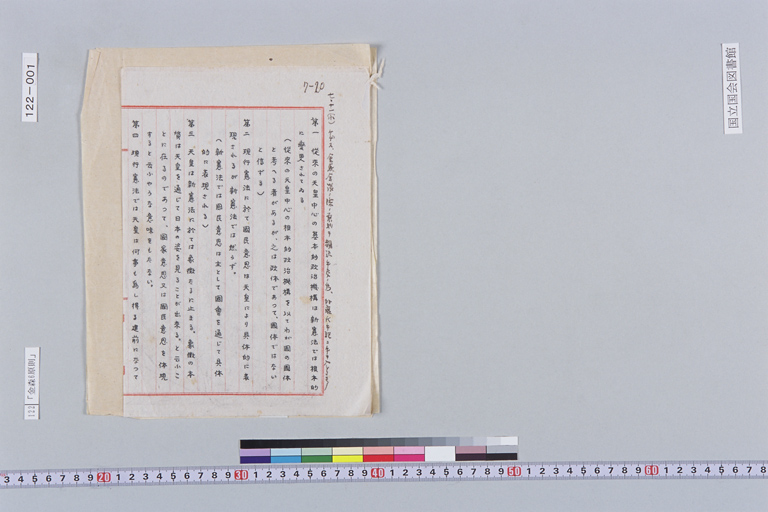 122-001
国立国会図書館
122「金森6原則」
7-20
第一 従来の天皇中心の基本的政治機構は新憲法では根本的
に変更されてゐる
(従来の天皇中心の根本的政治機構を以てわが国の国体
と考へる者があるが、之は政体であつて、国体ではない
と信ずる)
第二 現行憲法に於て国民意思は天皇により具体的に表
現されるが新憲法では然らず。
(新憲法では国民意思は主として国会を通じて具体
的に表現される)
第三 天皇は新憲法に於ては象徴たるに止まる。象徴の本
質は天皇を通じて日本の姿を見ることが出来る。と云ふこ
とに在るのであつて、国家意思又は国民意思を体現
すると云ふやうな意味をもたない。
第四 現行憲法では天皇は何事も為し得る建前になつて
3 4 5 6 7 8 9 20 1 2 3 4 5 6 7 8 9 30 1 2 3 4 5 6 7 8 9 40 1 2 3 4 5 6 7 8 9 50 1 2 3 4 5 6 7 8 9 60 1 2 3 4 5 6 7 8